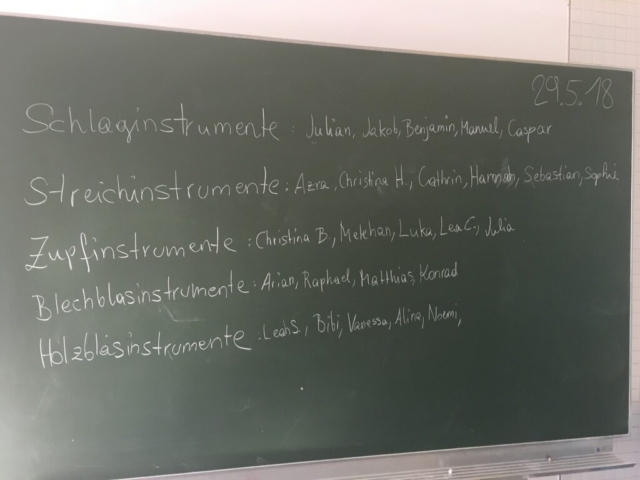 29.5.18
Schlaginstrumente: Julian, Jakob, Benjamin, Manuel, Caspar
Streichinstrumente: Azra, Christina H., Cathrin, Hannah, Sebastian, Sophie
Zupfinstrumente: Christina B, Metehan, Luka, Lea C., Julia
Blechblasinstrumente: Arian, Raphael, Matthias, Konrad
Holzblasinstrumente: Leah S., Bibi, Vanessa, Alina, Noemi,